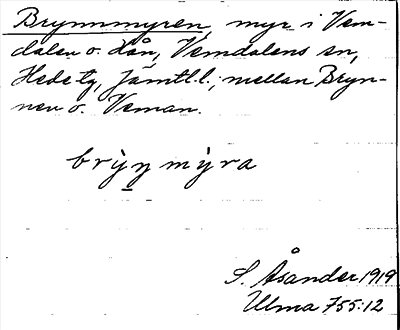 Brynnmyren, myr i Vem-
dalen o. Lån, Vemdalens sn,
Hede tg, Jämtl.l.; mellan Bryn-
nen o. Veman.
brỳn̲ mỳra
S. Åsander 1919
Ulma 755:12